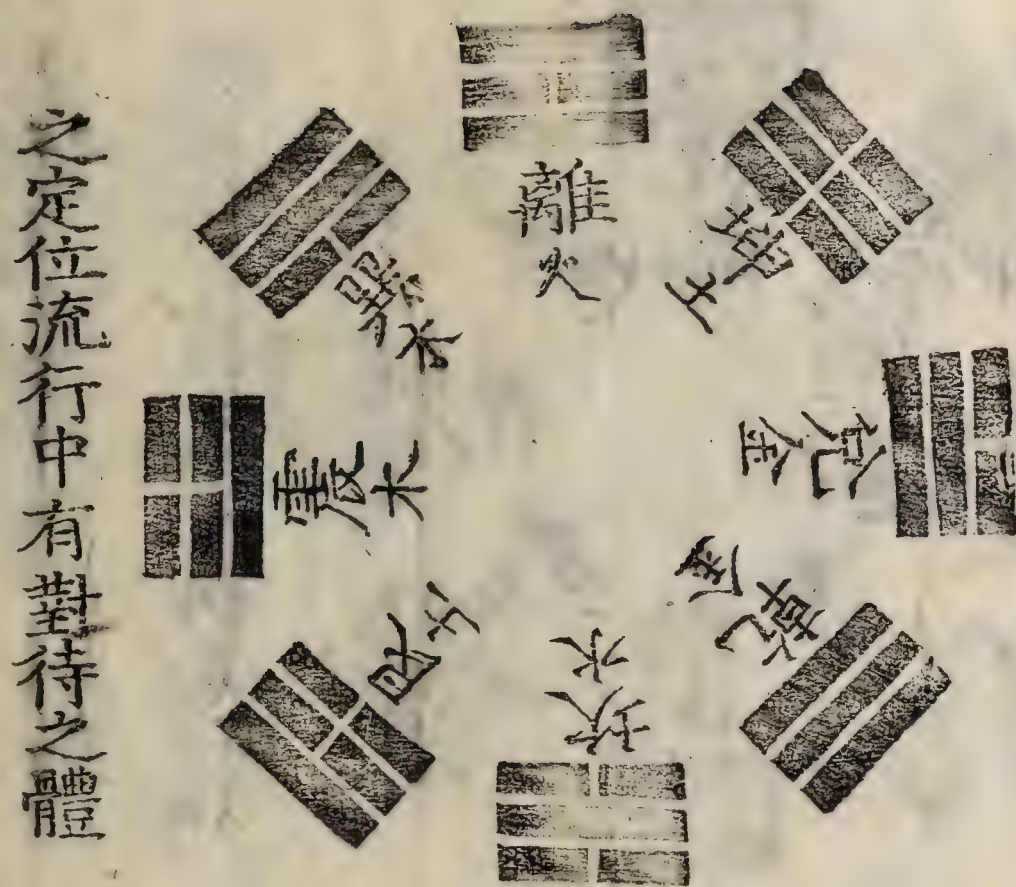 離火
坤土
兌金
乾
坎水
艮土
震木
巽木
之定位流行中有對待之體